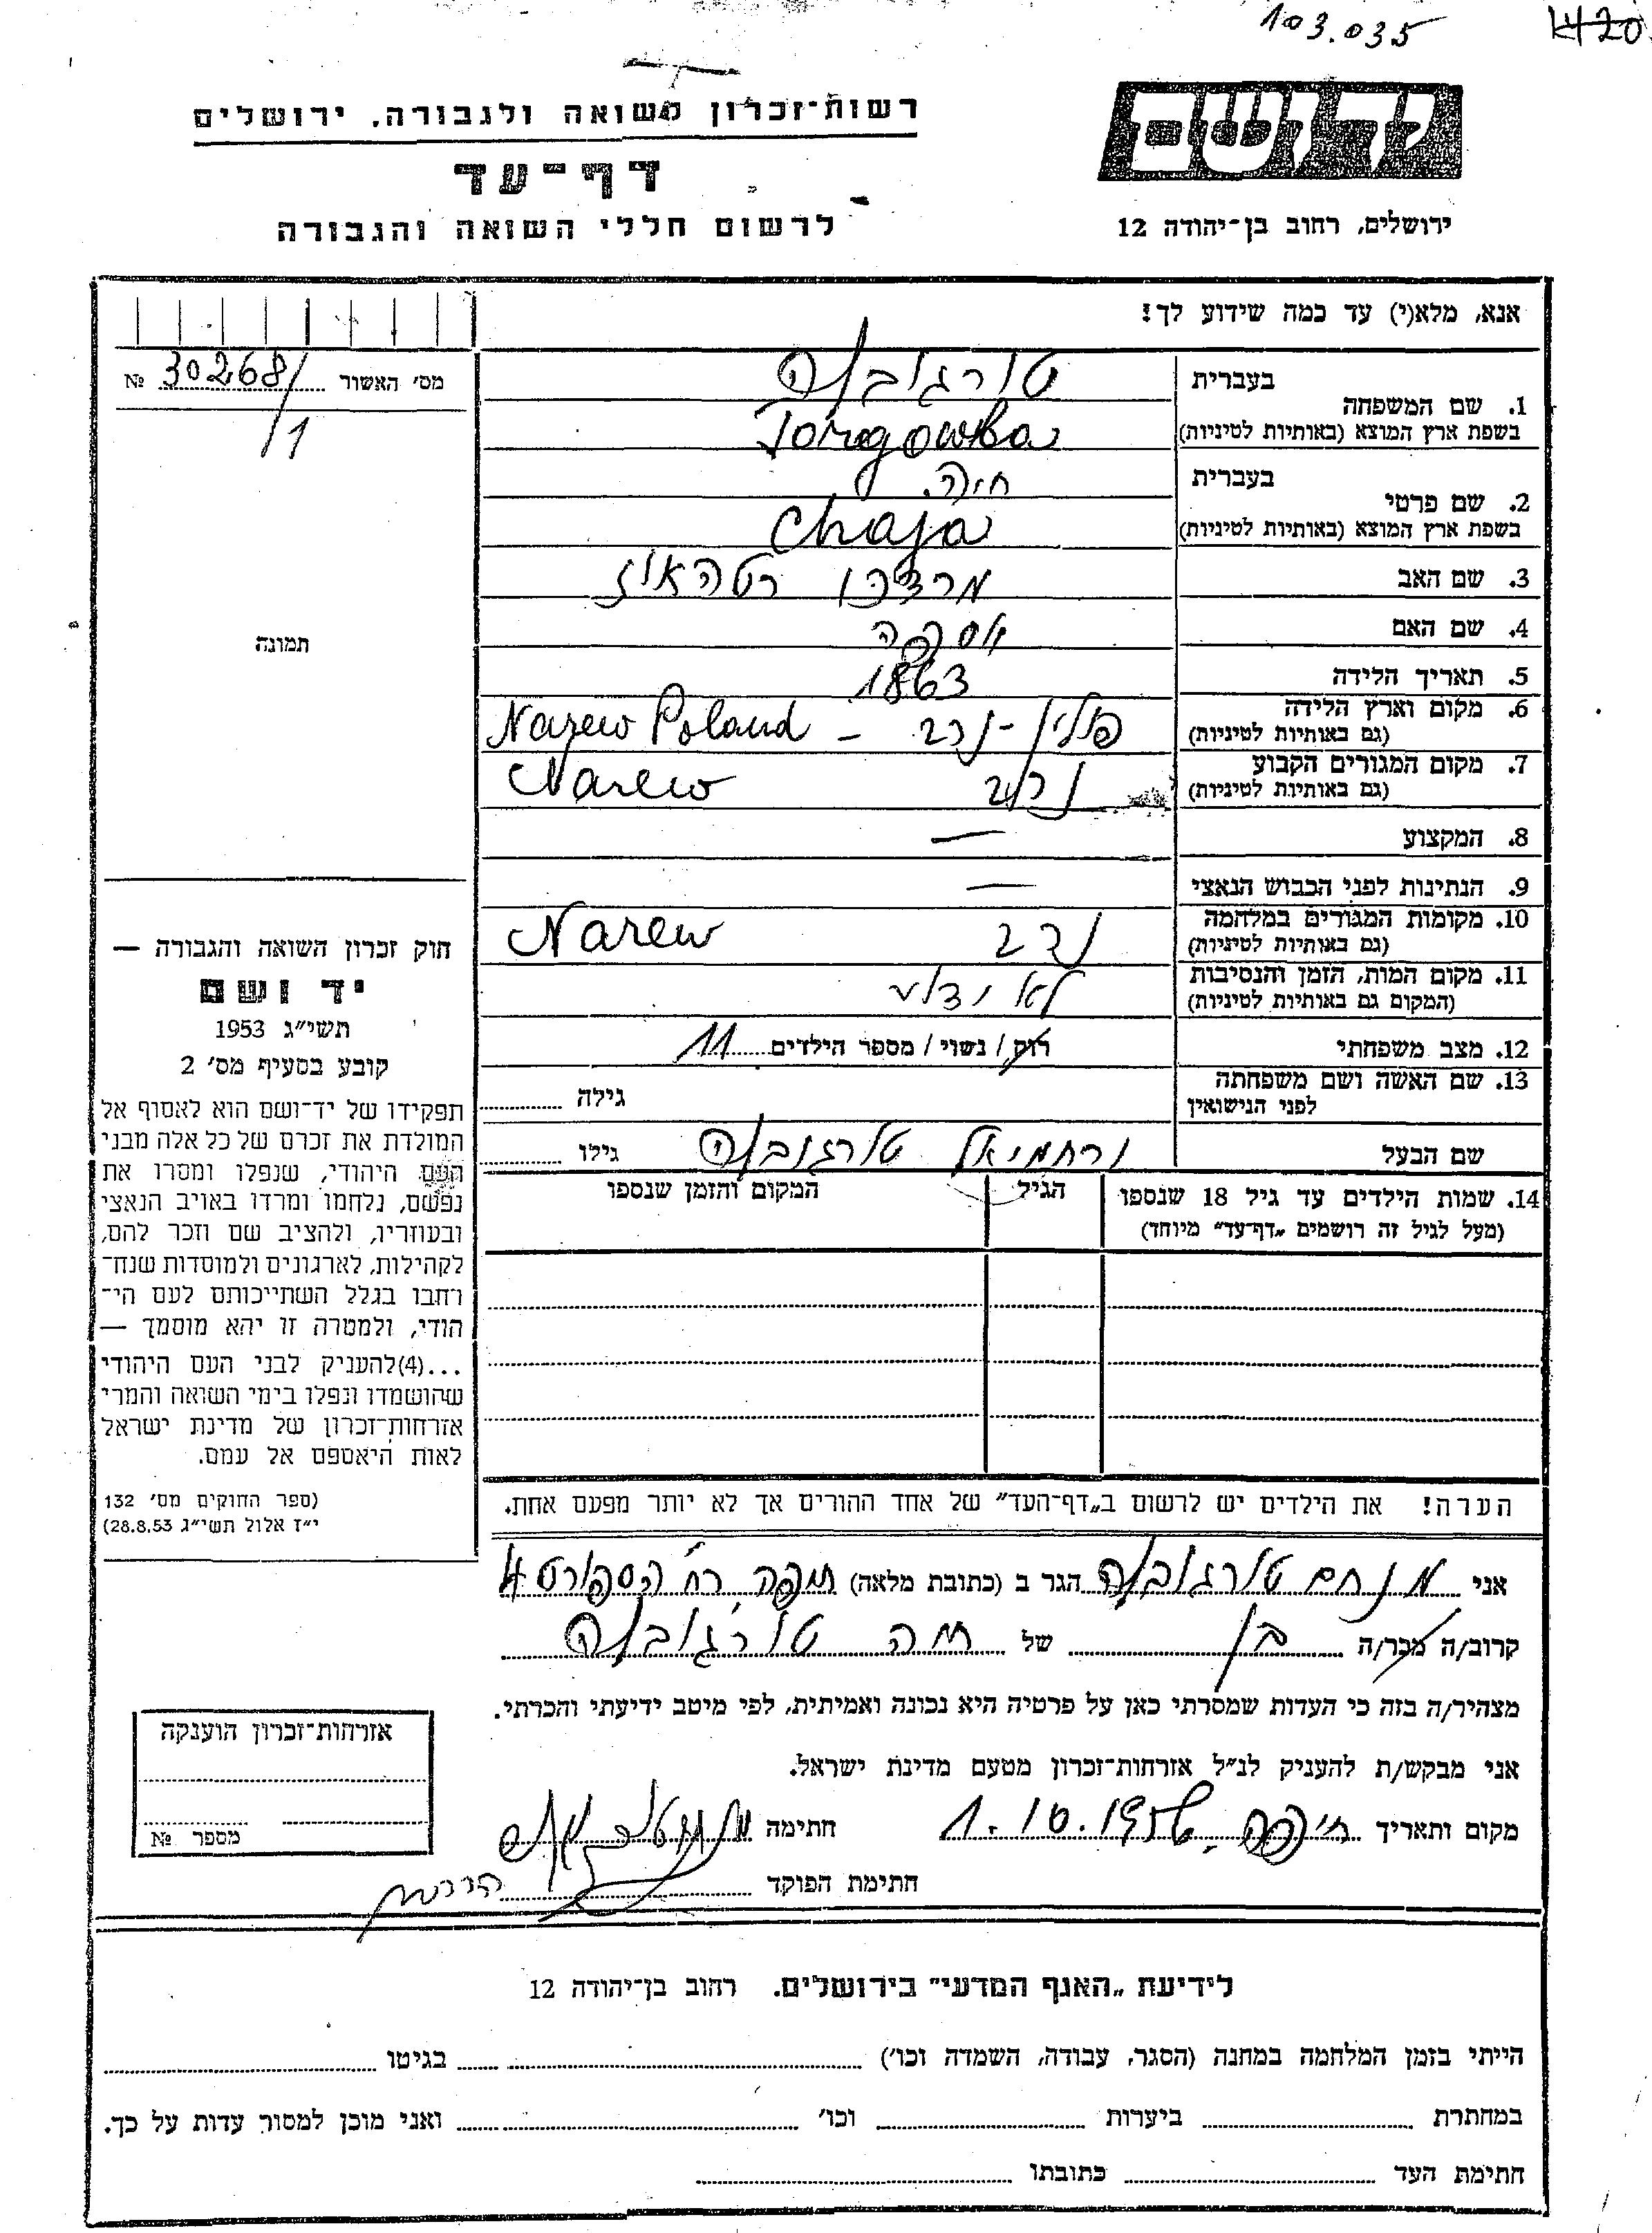 103.035
1420
רשות־זכרון לשואה ולגבורה, ירושלים
דף־עד
לרשום חללי השואה והגבורה
יד ושם
ירושלים, רחוב בן־יהודה 12
אנא, מלא(י) עד כמה שידוע לך!
מס׳ האשור № 30268/
/1
תמונה
בעברית טורגובקה
1. שם המשפחה
בשפת ארץ המוצא (באותיות לטיניות) Torgowka
בעברית חיה
2. שם פרטי
בשפת ארץ המוצא (באותיות לטיניות) Chaja
3. שם האב מרדכי רטהאוז
4. שם האם
5. תאריך הלידה 1863
6. מקום וארץ הלידה פולין - נרב - Narew Poland
(גם באותיות לטיניות)
7. מקום המגורים הקבוע נרב Narew
(גם באותיות לטיניות)
8. המקצוע —
9. הנתינות לפני הכבוש הנאצי —
10. מקומות המגורים במלחמה נרב Narew
(גם באותיות לטיניות)
11. מקום המות, הזמן והנסיבות לא ידוע
(המקום גם באותיות לטיניות)
12. מצב משפחתי רוק / נשוי / מספר הילדים 11
13. שם האשה ושם משפחתה
לפני הנישואין גילה
שם הבעל ירחמיאל טורגובקה גילו
14. שמות הילדים עד גיל 18 שנספו הגיל המקום והזמן שנספו
(מעל לגיל זה רושמים „דף־עד” מיוחד)
הערה! את הילדים יש לרשום ב„דף־העד” של אחד ההורים אך לא יותר מפעם אחת.
חוק זכרון השואה והגבורה —
יד ושם
תשי״ג 1953
קובע בסעיף מס׳ 2
תפקידו של יד־ושם הוא לאסוף אל
המולדת את זכרם של כל אלה מבני
העם היהודי, שנפלו ומסרו את
נפשם, נלחמו ומרדו באויב הנאצי
ובעוזריו, ולהציב שם וזכר להם,
לקהילות, לארגונים ולמוסדות שנח־
רחבו בגלל השתייכותם לעם הי־
הודי, ולמטרה זו יהא מוסמך —
...(4)להעניק לבני העם היהודי
שהושמדו ונפלו בימי השואה והמרי
אזרחות־זכרון של מדינת ישראל
לאות היאספם אל עמם.
(ספר החוקים מס׳ 132
י״ז אלול תשי״ג 28.8.53)
אני מנחם טורגובקה הגר ב (כתובת מלאה) חיפה רח׳ הספורט 4
קרוב/ה מכר/ה בן של חיה טורגובקה
מצהיר/ה בזה כי העדות שמסרתי כאן על פרטיה היא נכונה ואמיתית, לפי מיטב ידיעתי והכרתי.
אני מבקש/ת להעניק לנ״ל אזרחות־זכרון מטעם מדינת ישראל.
מקום ותאריך חיפה, 1.10.1956 חתימה
חתימת הפוקד
אזרחות־זכרון הוענקה
מספר №
לידיעת „האגף המדעי” בירושלים. רחוב בן־יהודה 12
הייתי בזמן המלחמה במחנה (הסגר, עבודה, השמדה וכו׳) בגיטו
במחתרת ביערות וכו׳ ואני מוכן למסור עדות על כך.
חתימת העד כתובתו